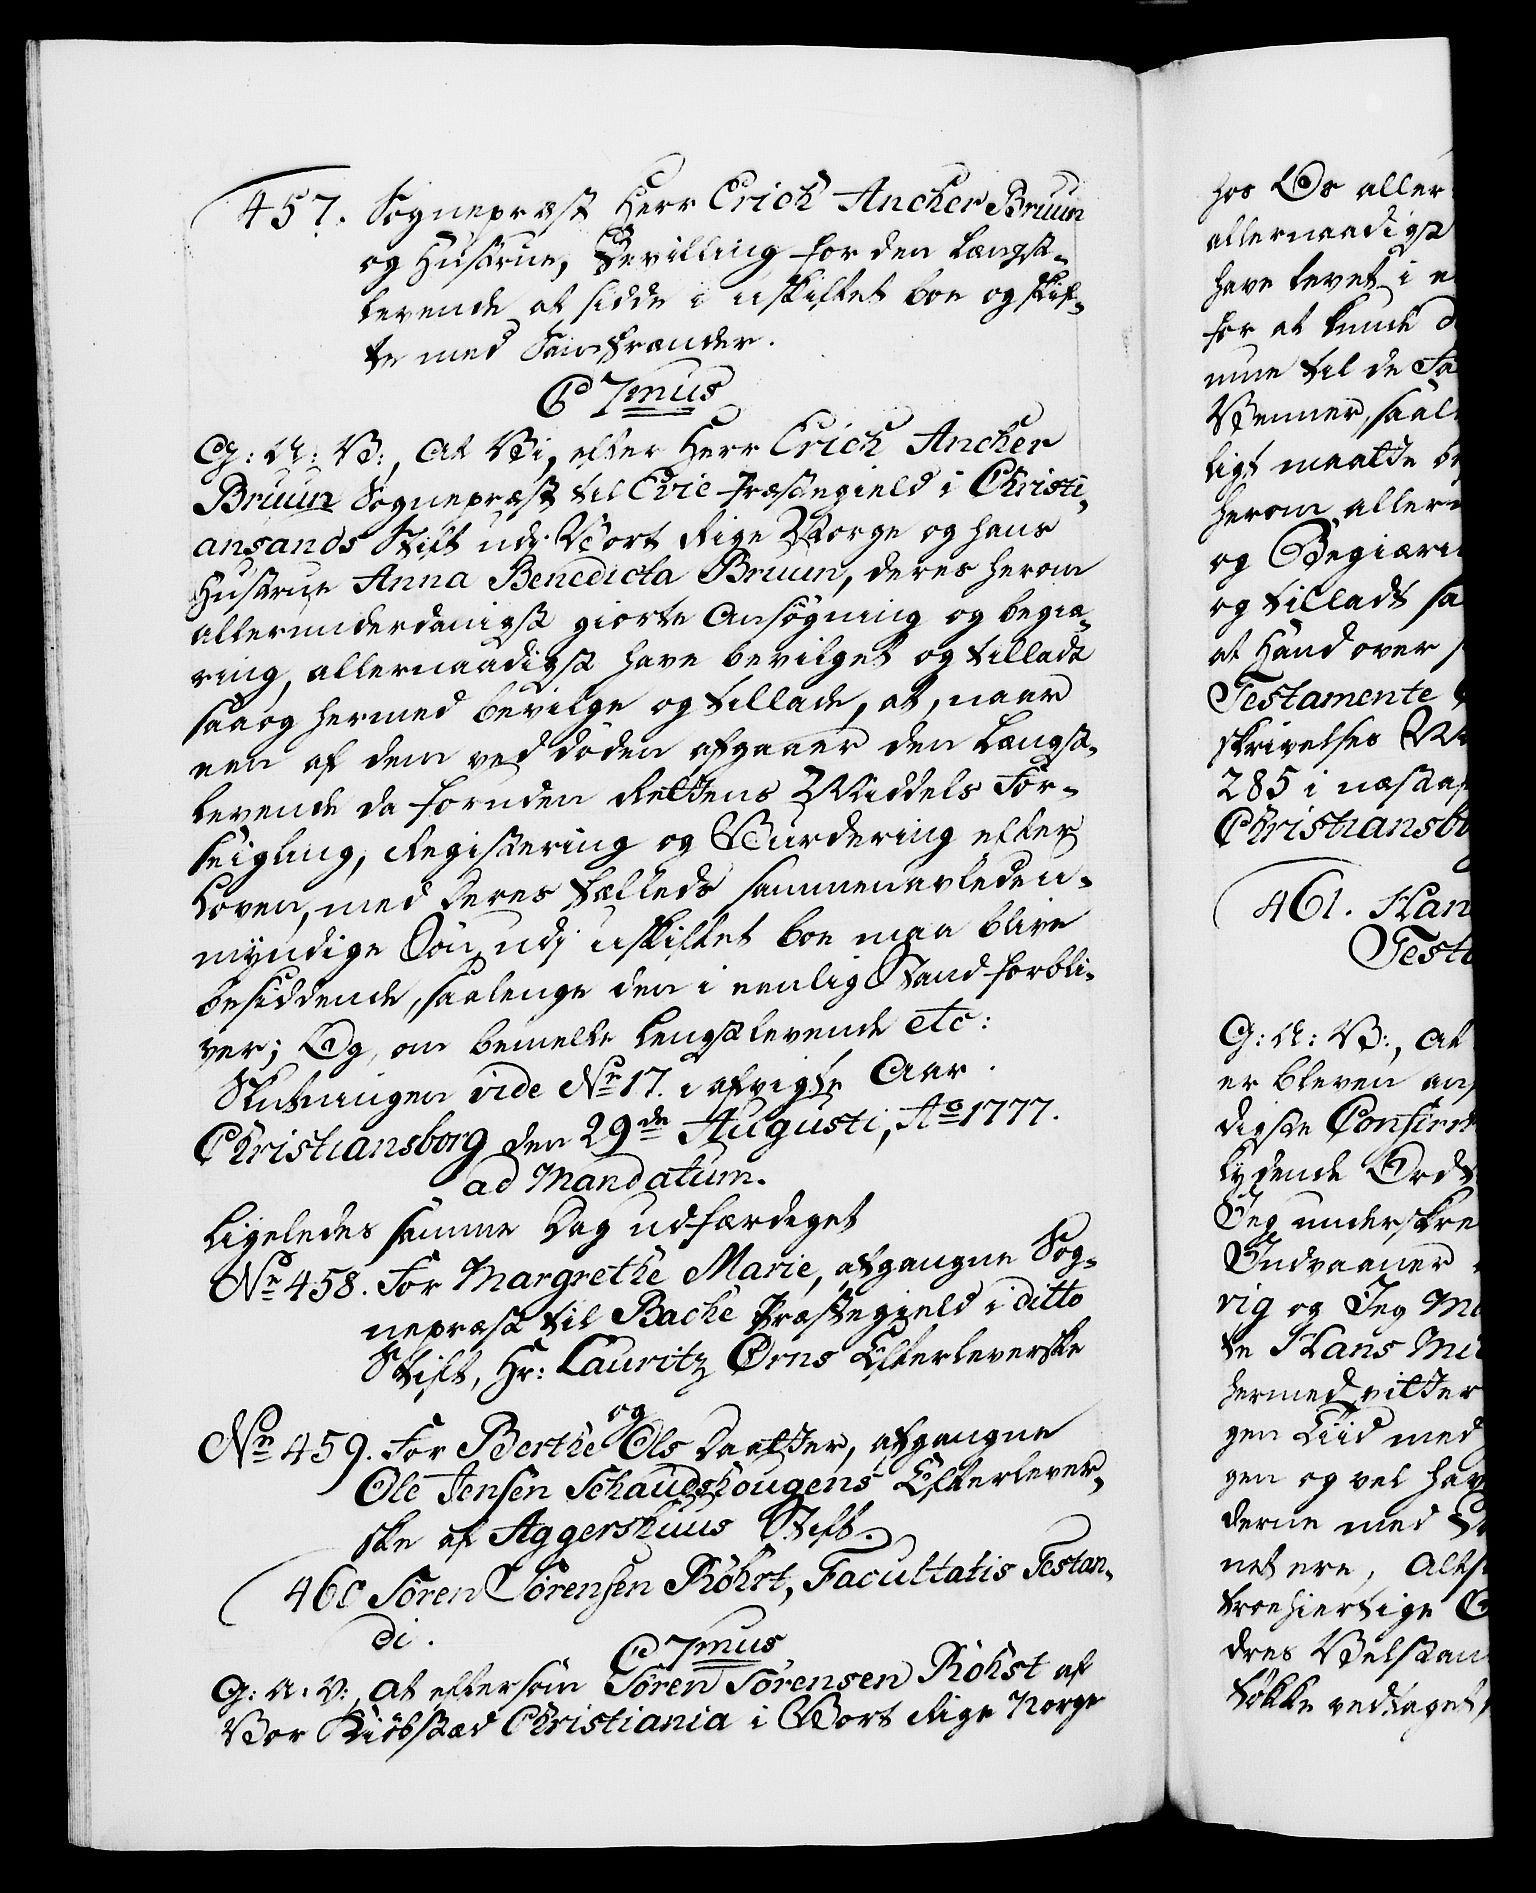 457. Sognepræst Herr Erich Ancher Bruun
og Hustrue, Bevilling for den Længst-
levende at sidde i uskiftet boe og skif-
te med Samfrænder.
C 7mus
G: A: V:, At Vi, efter Herr Erich Ancher
Bruun Sognepræst til Evie Præstegield i Christi-
ansands Stift udi Vort Rige Norge og hans
Hustrue Anna Benedicta Bruun, deres herom
allerunderdanigst giorte Ansøgning og begiæ-
ring, allernaadigst have bevilget og tilladt
saa og hermed bevilge og tillade, at, naar
een af dem ved døden afgaaer den Længst-
levende da foruden Rettens Middels For-
seigling, Registering og Vurdering efter
Loven, med deres fælleds sammenavlede u-
myndige Søn udi uskiftet boe maa blive
besiddende, saalenge den i eenlig Stand forbli-
ver; Og, om bemelte Længstlevende etc:
Slutningen vide No 17. i afvigte Aar.
Christiansborg den 29de Augusti, Ao 1777.
ad Mandatum.
Ligeledes samme Dag udfærdiget
No 458. For Margrethe Marie, afgangne Sog-
nepræst til Bache Præstegield i ditto
Stift, Hr: Lauritz Ørns Efterleverske
og
No 459. For Berthe Ols Daatter, afgangne
Ole Jensen Schaudshougens Efterlever-
ske af Aggershuus Stift.
460 Søren Sørensen Röhrt, Facultatis Testan-
di.
C 7mus
G: A: V:, At eftersom Søren Sørensen Röhst af
Vor Kiøbstæd Christiania i Vort Rige Norge
hos Os aller
allernaadigst
have levet i
for at kunde
mue til de
Venner, saal
ligt maatte
herom aller
og Begiæri
og tilladt sa
at Haand over
Testamente
skrivelses
285 i næstaf
Christiansbo
461. Han
Testa
G: A: V:, At
er bleven an
digste Confirm
lydende Ord
Jeg underskre
Indvaaner
vig og Jeg
te Hans
hermed vitter
gen Tiid med
gen og vel hav
derne med
net ere, Alts
troehiertige
dres Velstan
tökke vedtaget,